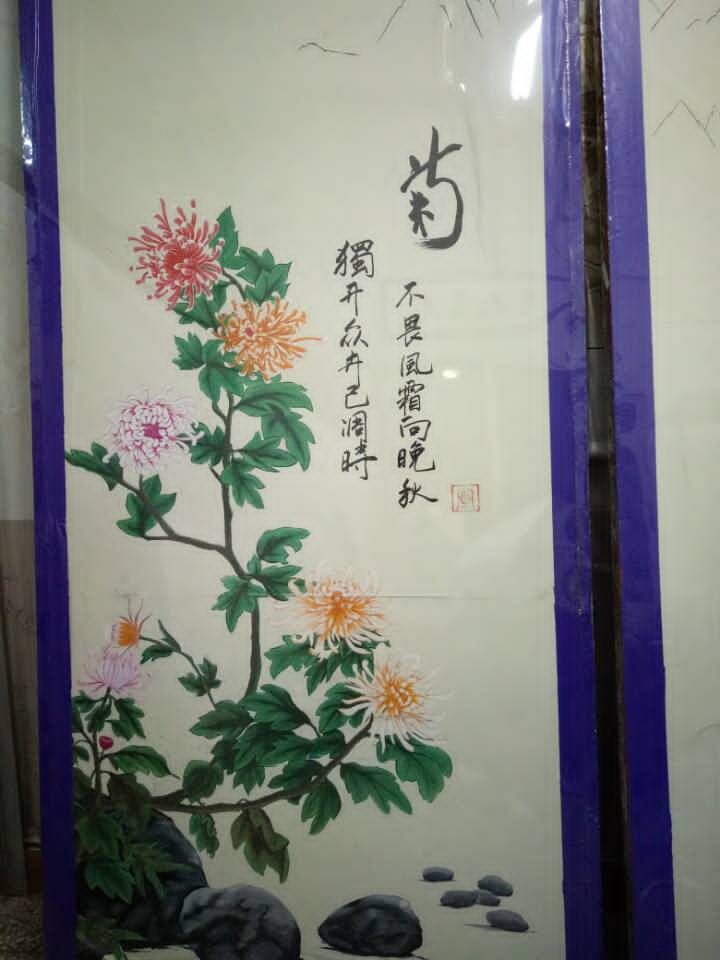 菊
不畏風霜向晚秋
獨开众卉已凋時